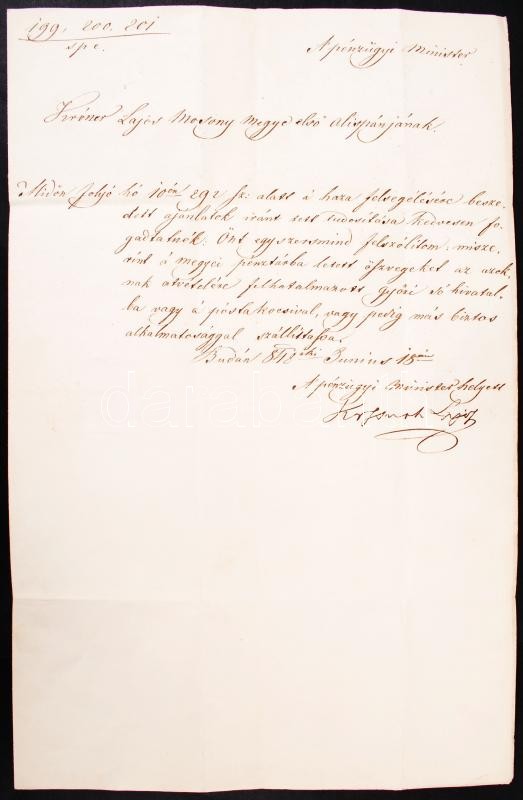 199. 200. 201
spc.
A pénzügyi Minister
Króner Lajos Mosony Megye első Alispánjának.
Midőn folyó hó 10én 292 sz: alatt á haza felsegélésére besze-
dett ajánlatok iránt tett tudosítása kedvesen fo-
gadtatnék: Önt egyszersmind felszólítom: misze-
rint á megyei pénztárba letett öszvegeket az azok-
nak átvételére felhatalmazott győri só hivatal-
ba vagy á posta kocsival, vagy pedig más biztos
alkalmatosággal szállíttassa.
Budán Junius 18án
A pénzügyi Minister helyett